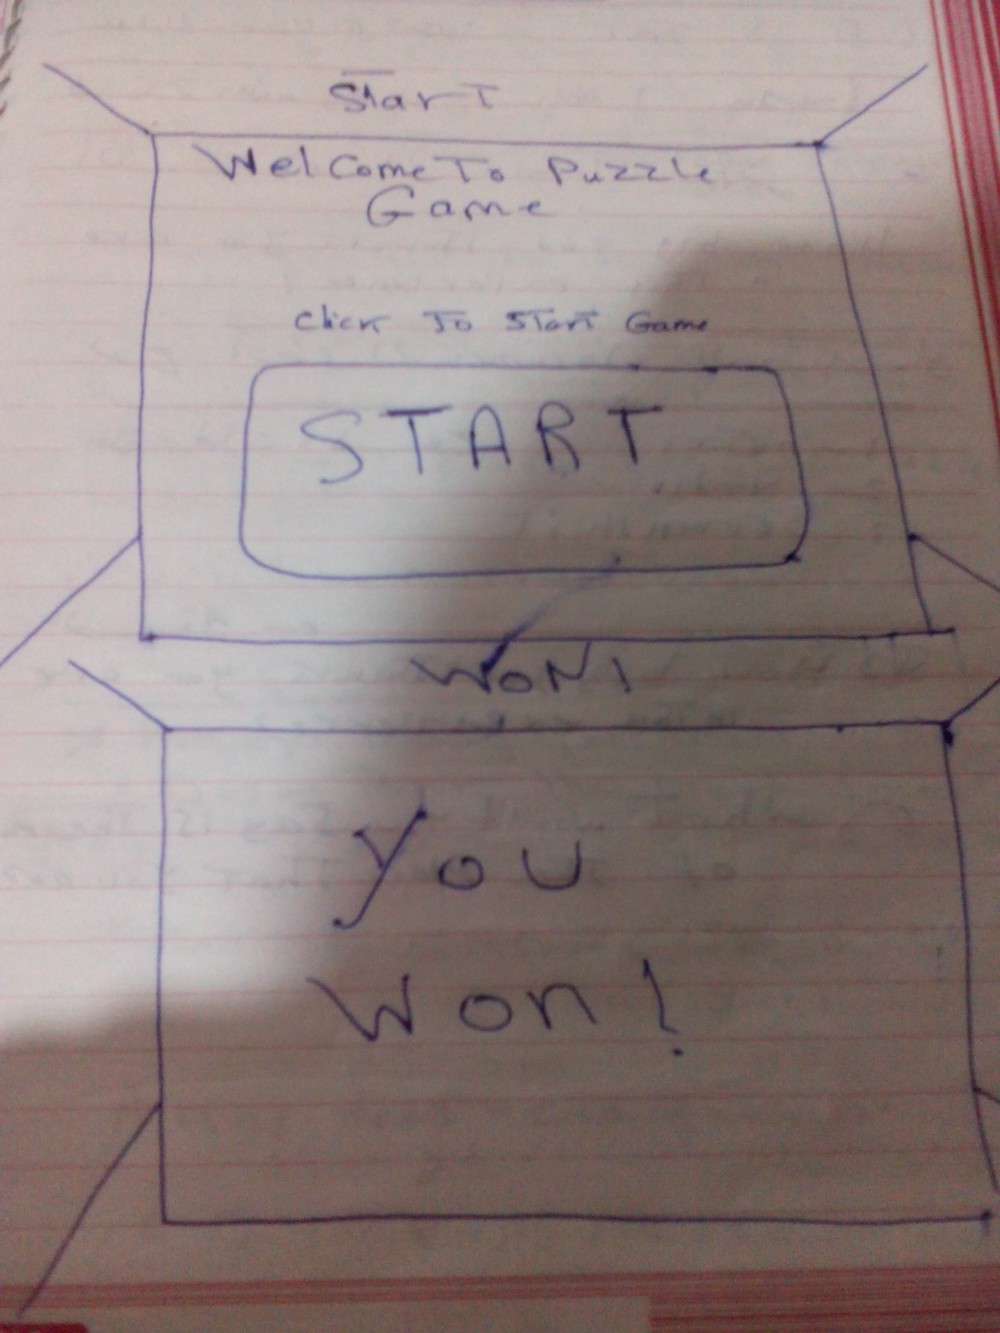 Start
Welcome To Puzzle
Game
Click To Start Game
START
WON!
You
Won!